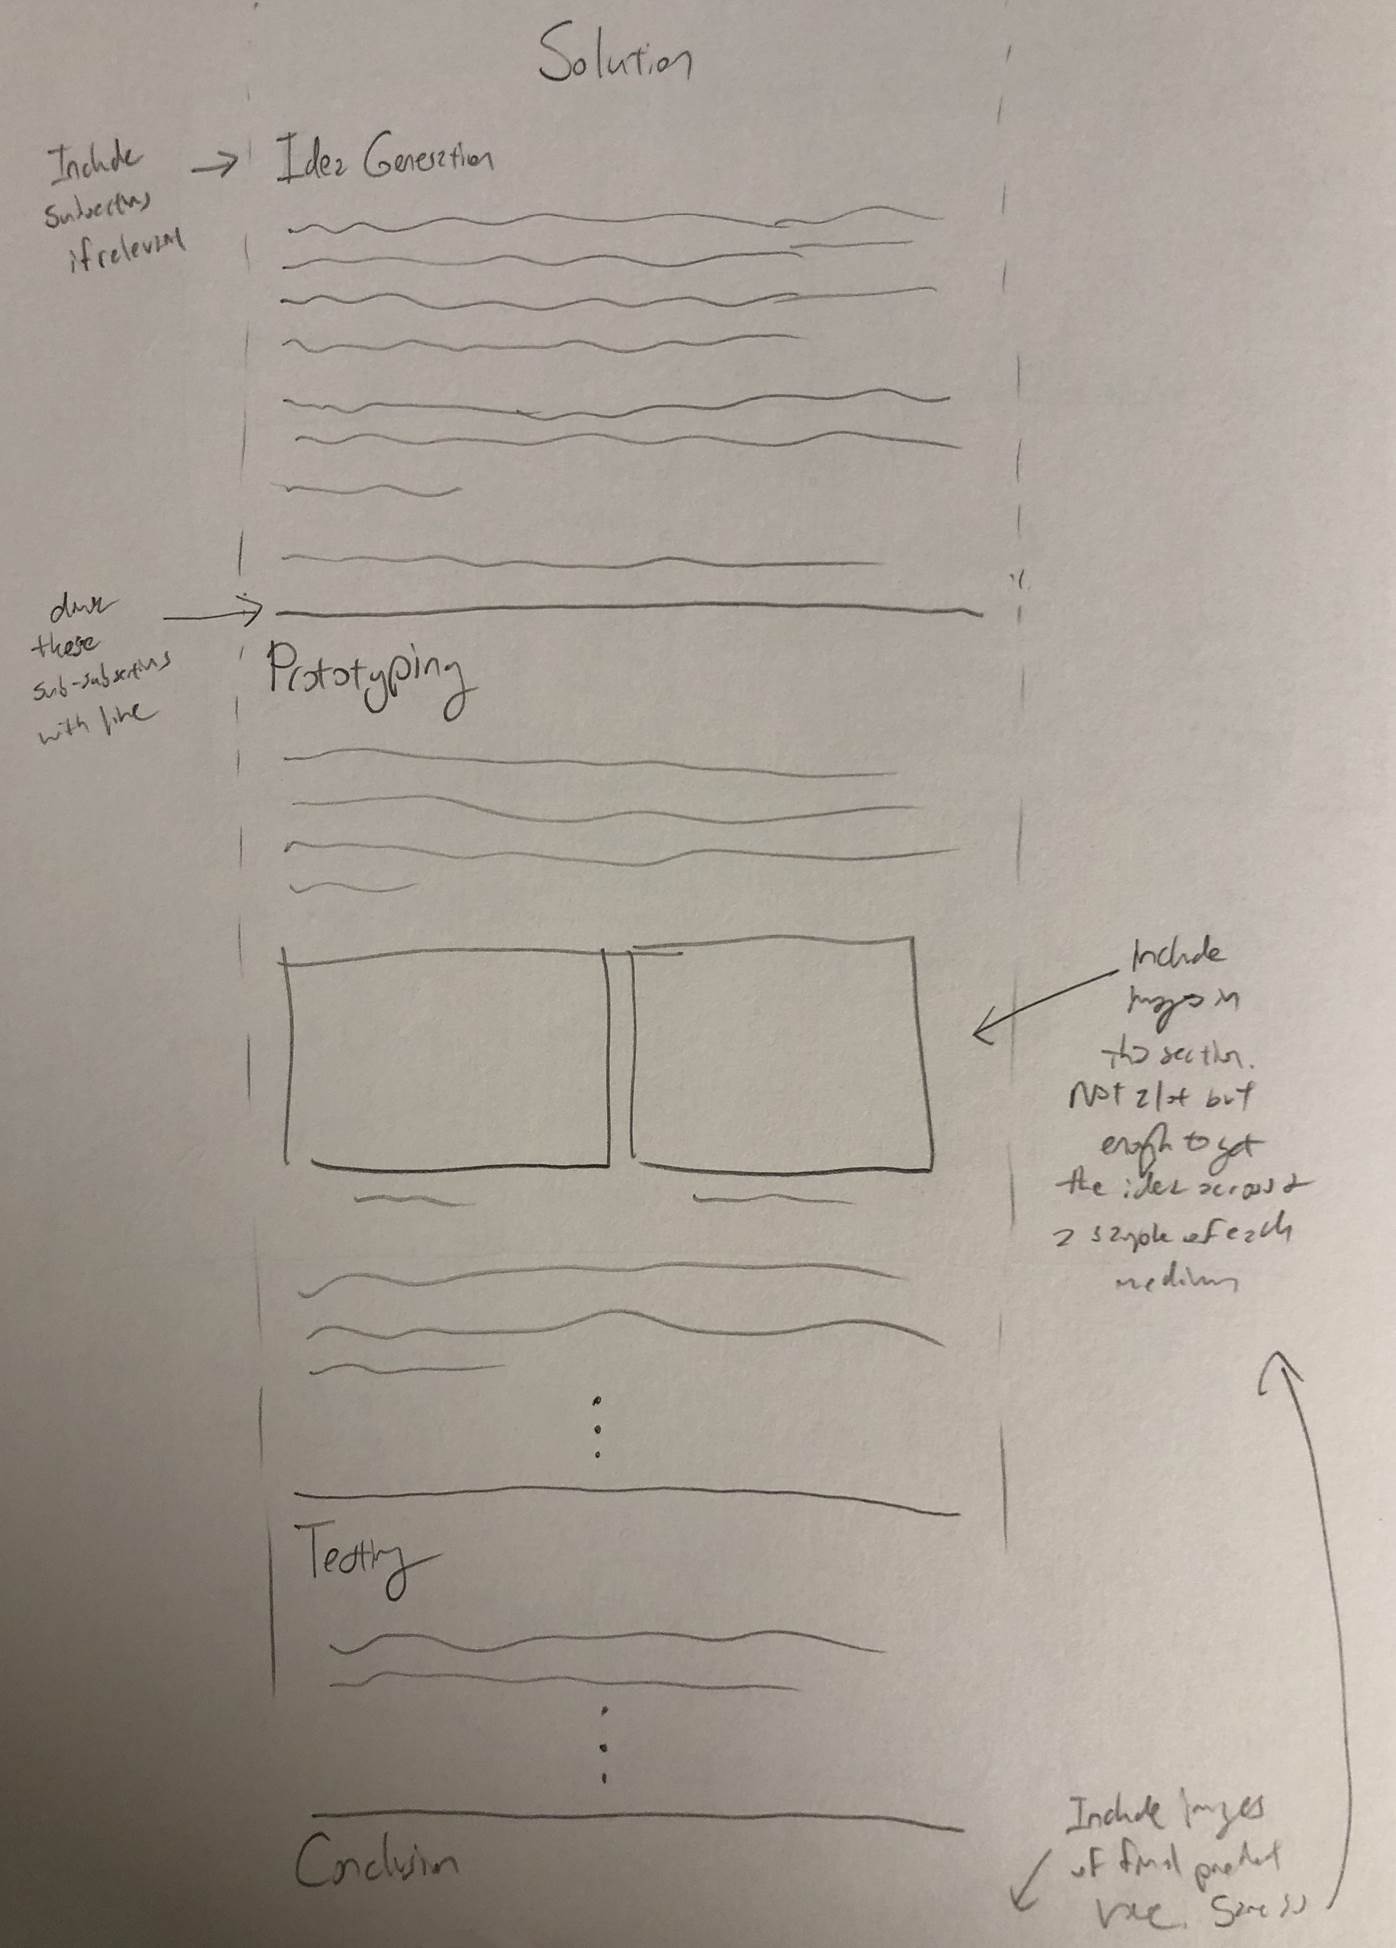 Solution
Include
subsections
if relevant
Idea Generation
these
sub-subsections
with line
Prototyping
Include
images in
this section.
Not a lot but
enough to get
the idea across &
a sample of each
medium
Testing
Include Images
of final product
here. Same as
Conclusion